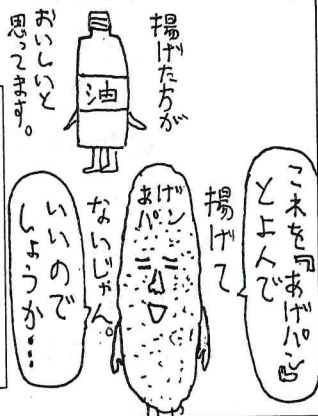 これを『あげパン』
とよんで
いいので
しょうか…
揚げて
ないじゃん。
あげ
パン
揚げた方が
おいしいと
思ってます。
油